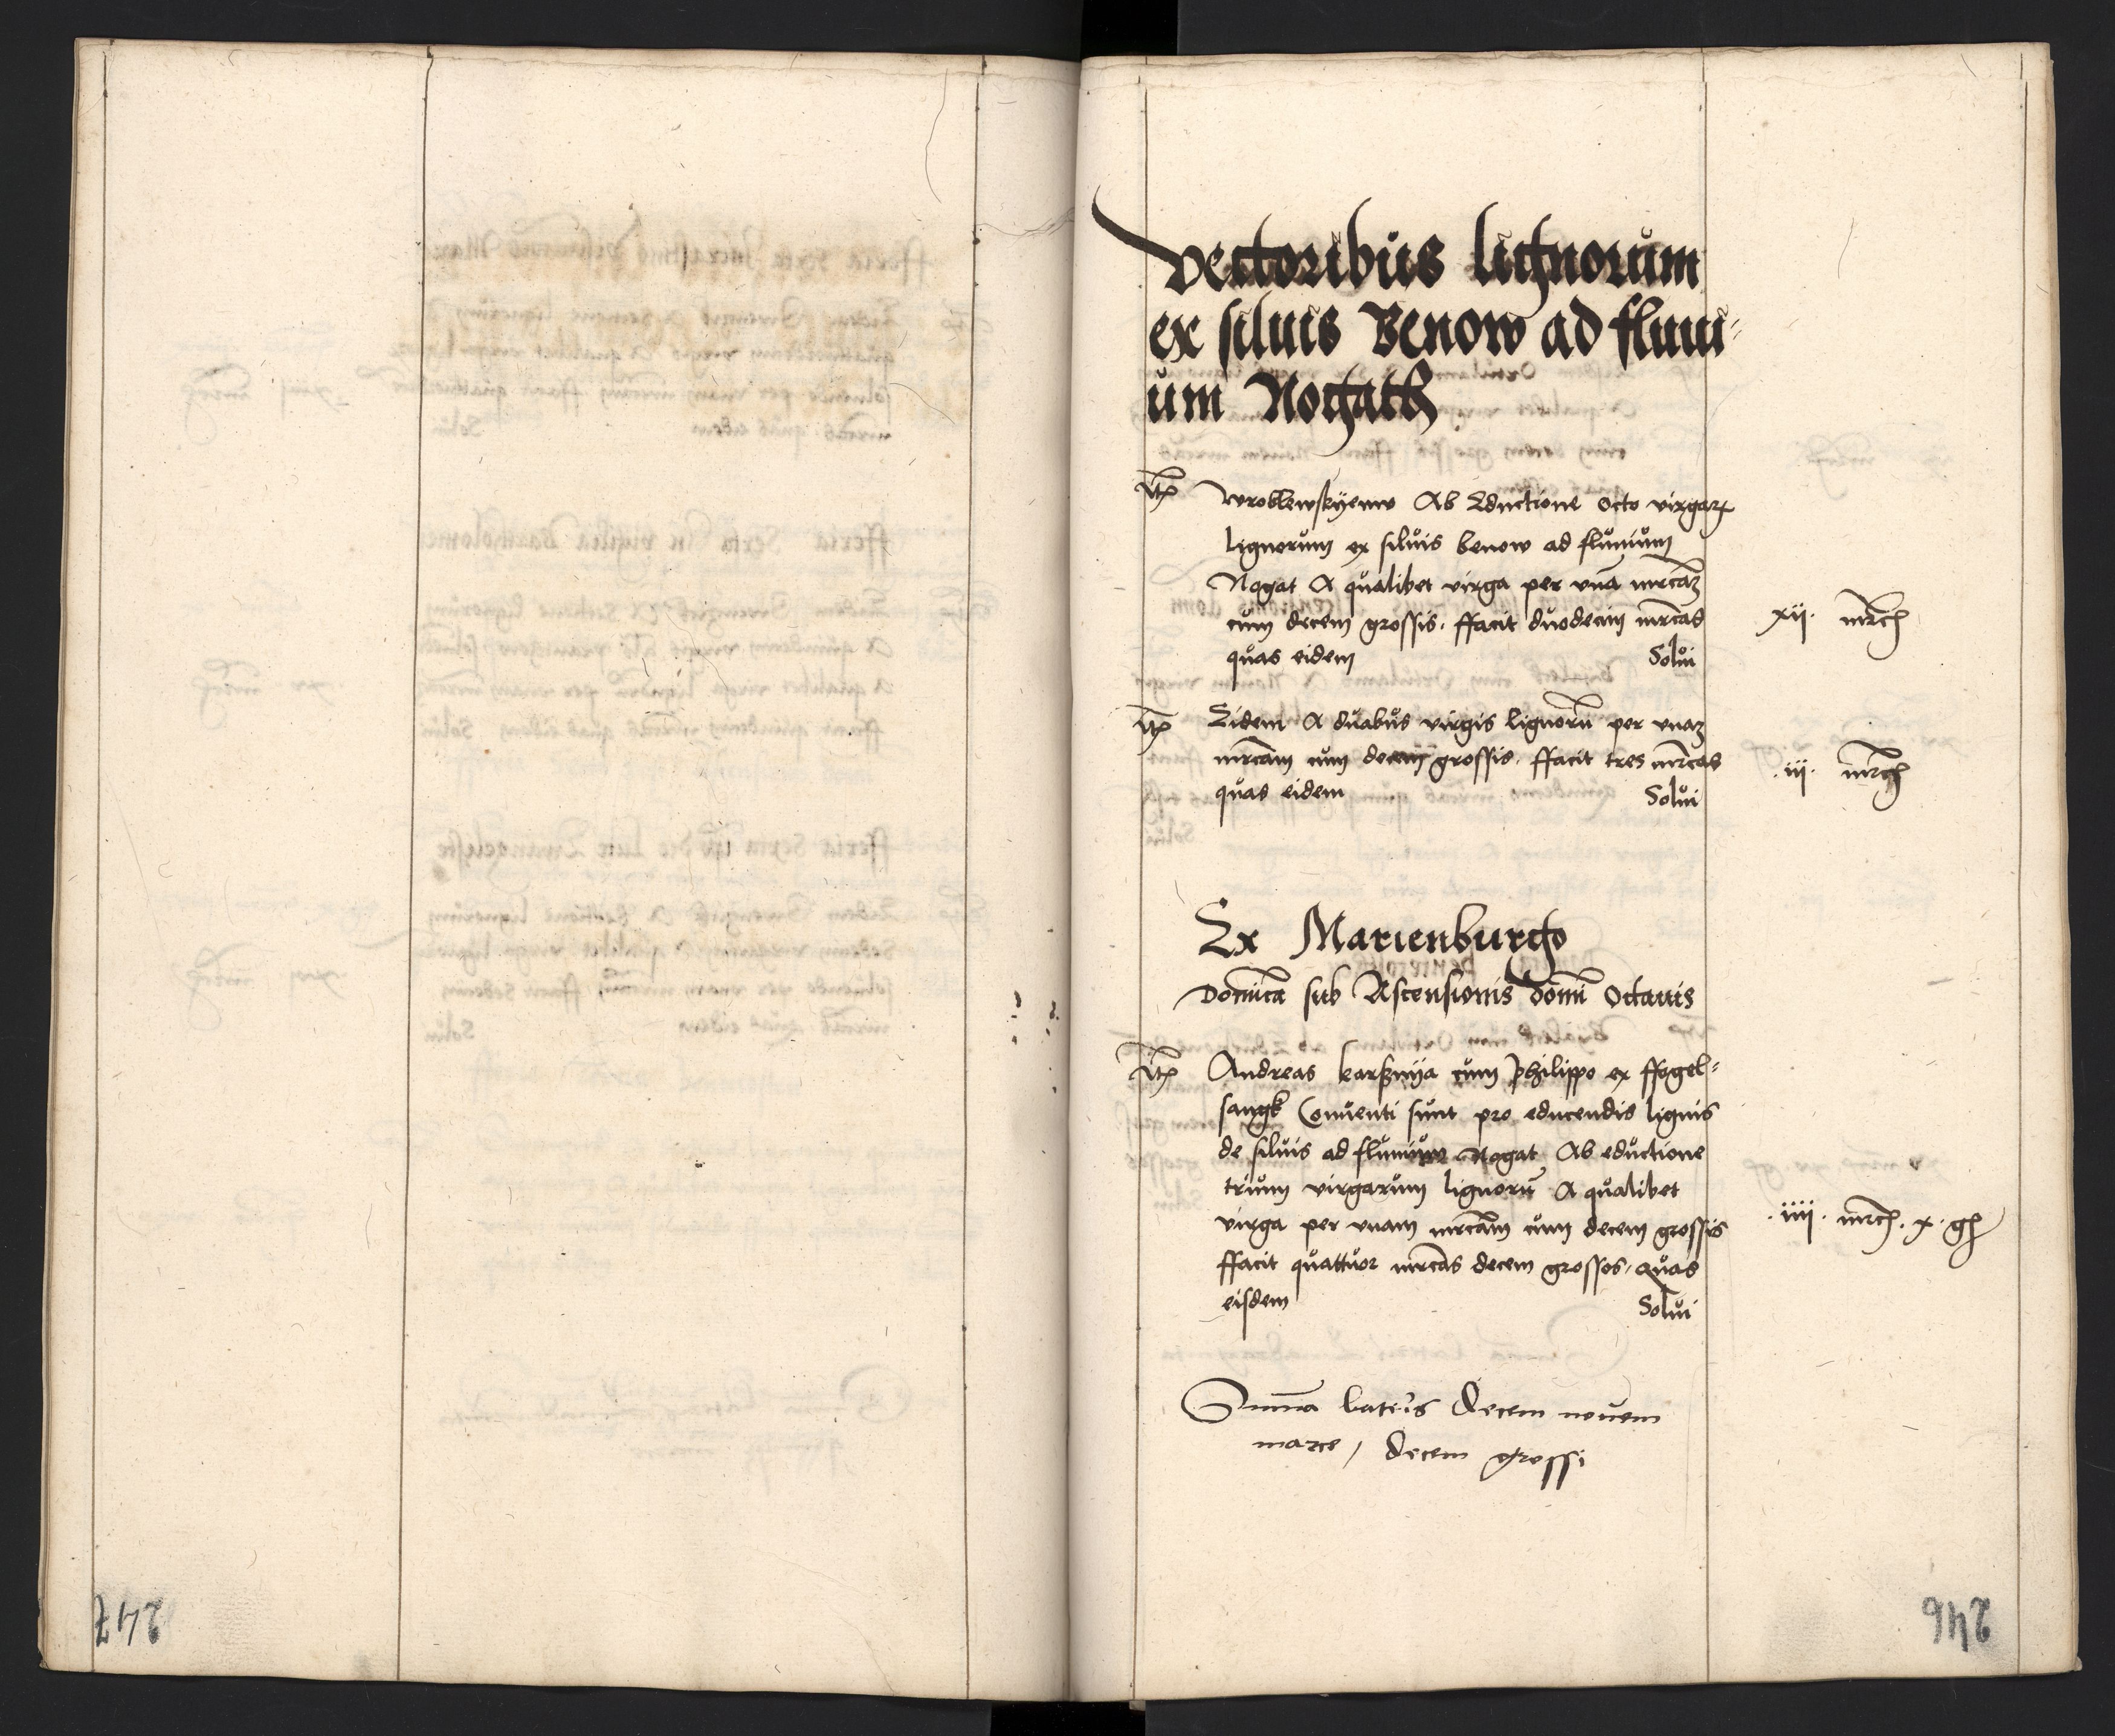 Vectoribus lignorum
ex siluis Benow ad fluui⸗
um Nogath
Itꝫ Wroblewskyemv Ab Eductione Octo virgarꝫ
lignorum ex siluis benow ad fluuium
Nogat A qualibet virga per vnā mrcaꝫ
cum decem grossis. ffacit duodecim mrcas xij. mrcꝭ
quas eidem Solui
Itꝫ Eidem A duabus virgis lignorū per vnaꝫ
mrcam cum decem grossis. ffacit tres mrcas .iij. mrcꝭ
quas eidem Solui
Ex Marienburgo
Domīca sub Ascensionis domī Octauis
Itꝫ Andreas cum Philippo ex ffogel⸗
sangk Conuenti sunt pro educendis lignis
de siluis ad fluuium Nogat Ab eductione
trium virgarum lignorū A qualibet
virga per vnam mrcam cum decem grossis .iiij. mrcꝭ. x. gꝭ
ffacit quattuor mrcas decem grossos, quas
eisdem Solui
Summa lateris decem nouem
marce, decem grossi
247
246